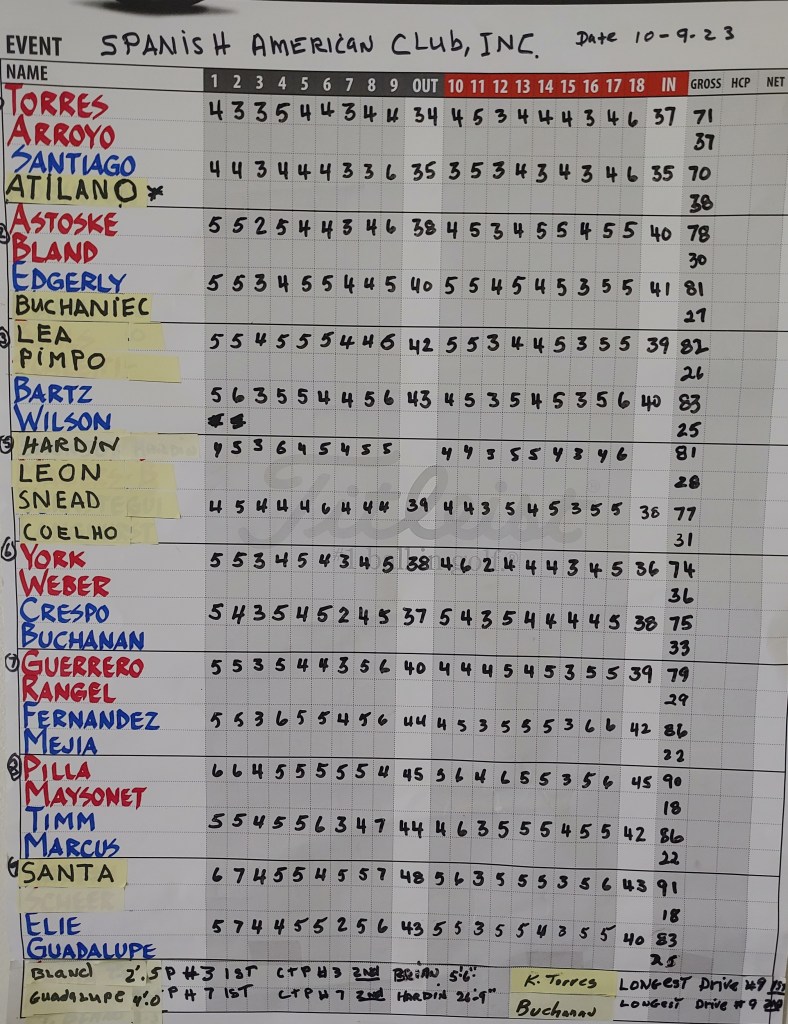 EVENT SPANISH AMERICAN CLUB, INC. Date 10-9-23
NAME 1 2 3 4 5 6 7 8 9 OUT 10 11 12 13 14 15 16 17 18 IN GROSS HCP NET
TORRES 4 3 3 5 4 4 3 4 4 34 4 5 3 4 4 4 3 4 6 37 71
ARROYO 37
SANTIAGO 4 4 3 4 4 4 3 3 6 35 3 5 3 4 3 4 3 4 6 35 70
ATILANO * 38
2 ASTOSKE 5 5 2 5 4 4 3 4 6 38 4 5 3 4 5 5 4 5 5 40 78
BLAND 30
EDGERLY 5 5 3 4 5 5 4 4 5 40 5 5 4 5 4 5 3 5 5 41 81
BUCHANIEC 27
3 LEA 5 5 4 5 5 5 4 4 5 42 5 5 3 4 4 5 3 5 5 39 82
PIMPO 26
BARTZ 5 6 3 5 5 4 4 5 6 43 4 5 3 5 4 5 3 5 6 40 83
WILSON 25
5 HARDIN 4 5 3 6 4 5 4 5 5 4 4 3 5 5 4 3 4 6 81
LEON 28
SNEAD 4 5 4 4 4 6 4 4 4 39 4 4 3 5 4 5 3 5 5 38 77
COELHO 31
6 YORK 5 5 3 4 5 4 3 4 5 38 4 6 2 4 4 4 3 4 5 36 74
WEBER 36
CRESPO 5 4 3 5 4 5 2 4 5 37 5 4 3 5 4 4 4 4 5 38 75
BUCHANAN 33
7 GUERRERO 5 5 3 5 4 4 3 5 6 40 4 4 4 5 4 5 3 5 5 39 79
RANGEL 29
FERNANDEZ 5 5 3 6 5 5 4 5 6 44 4 5 3 5 5 5 3 6 6 42 86
MEJIA 22
8 PILLA 6 6 4 5 5 5 5 5 4 45 5 6 4 6 5 5 3 5 6 45 90
MAYSONET 18
TIMM 5 5 4 5 5 6 3 4 7 44 4 6 3 5 5 5 4 5 5 42 86
MARCUS 22
9 SANTA 6 7 4 5 5 4 5 5 7 48 5 6 3 5 5 5 3 5 6 43 91
18
ELIE 5 7 4 4 5 5 2 5 6 43 5 5 3 5 5 4 3 5 5 40 83
GUADALUPE 25
Bland 2'.5 P #3 1ST CTP #3 2nd BRIAN 5'6" K. Torres LONGEST Drive #9 1ST
Guadalupe 4'.0 P #7 1ST CTP #7 2nd HARDIN 26'-9" Buchanan LONGEST Drive #9 2nd